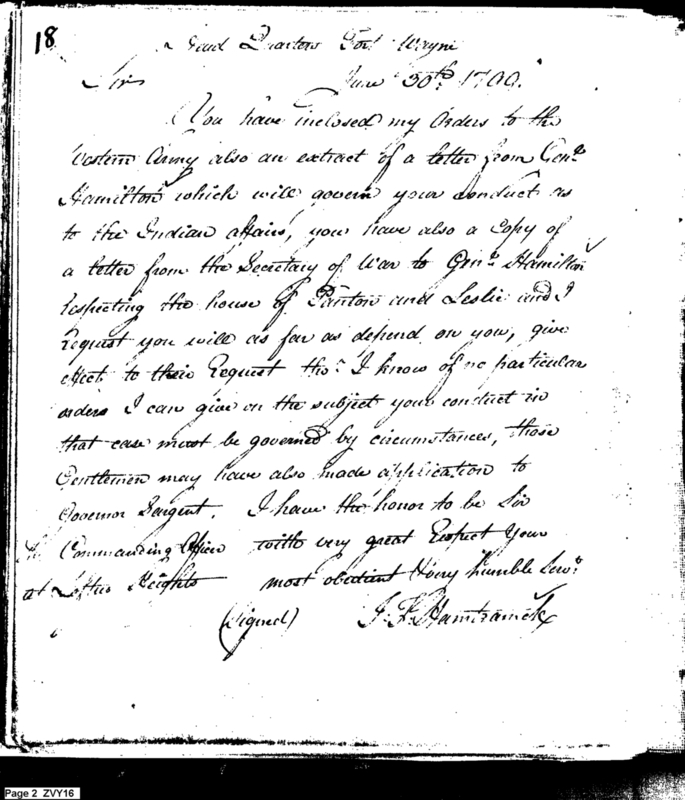 18
Head Quarters Fort Wayne
Sir June 30th. 1799.
You have inclosed my Orders to the
Western Army also an extract of a letter from Genl.
Hamilton which will govern your conduct as
to the Indian affairs, you have also a Copy of
a letter from the Secretary of War to Genl. Hamilton
respecting the house of Panton and Leslie and I
Request you will as far as depend on you, give
effect to their Request tho. I know of no particular
orders I can give on the subject your conduct in
that case must be governed by circumstances, those
Gentlemen may have also made application to
Governor Sargent. I have the honor to be Sir
The Commanding Officer with very great Respect Your
at Loftus Heights most obedient & very humble Servt.
(Signed) J. F. Hamtramck
Page 2 ZVY16